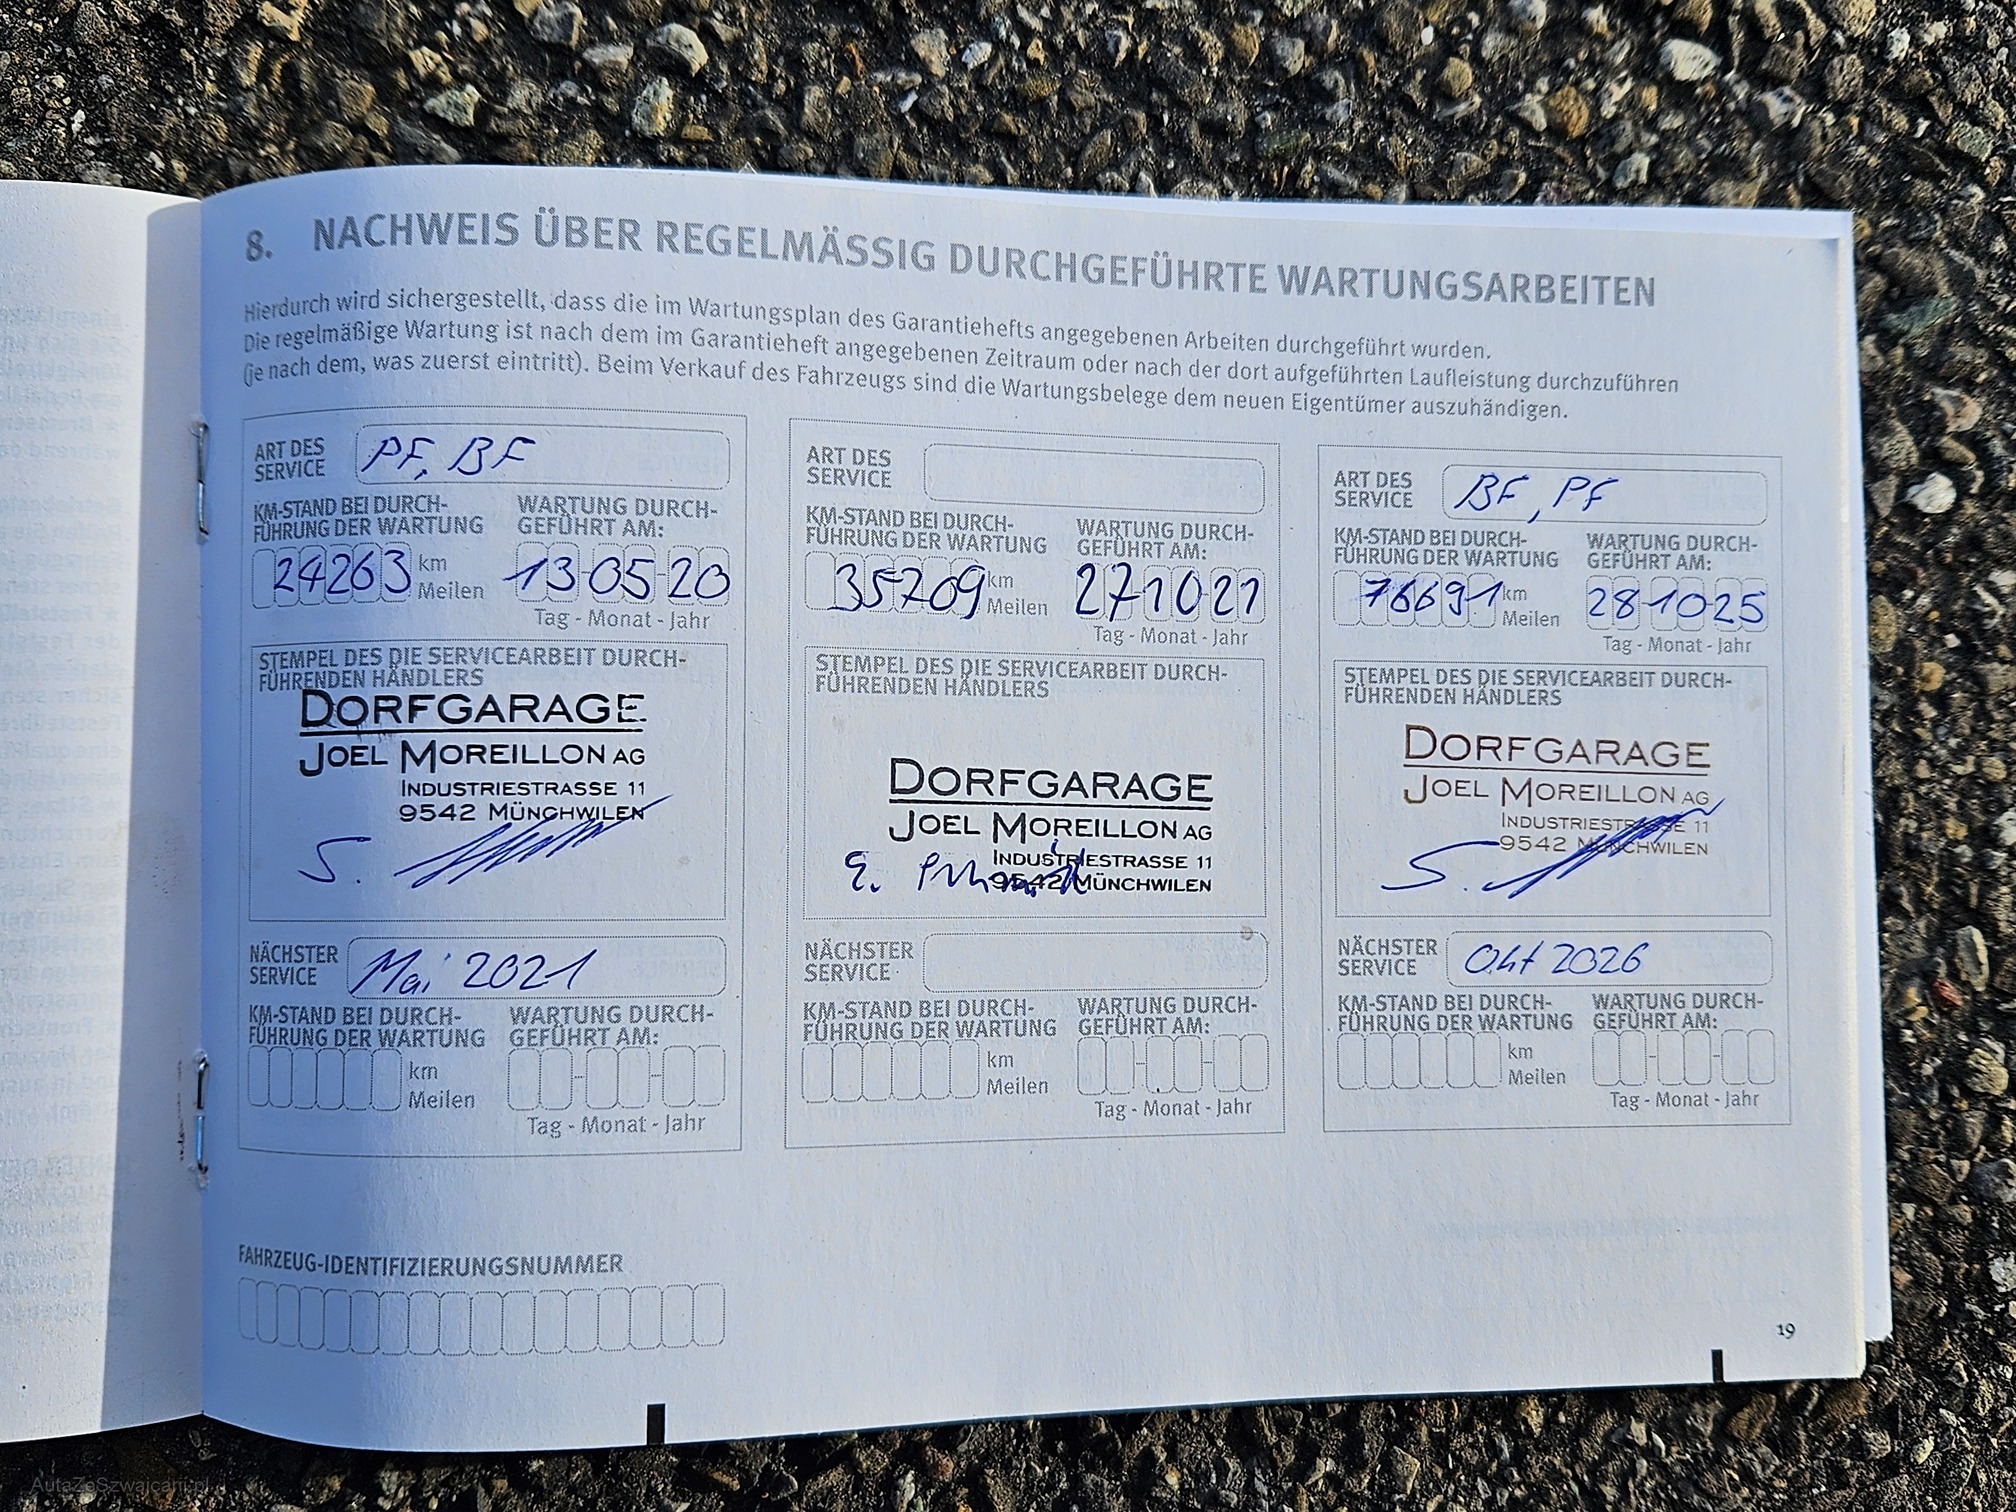 8. NACHWEIS ÜBER REGELMÄSSIG DURCHGEFÜHRTE WARTUNGSARBEITEN
Hierdurch wird sichergestellt, dass die im Wartungsplan des Garantiehefts angegebenen Arbeiten durchgeführt wurden.
Die regelmäßige Wartung ist nach dem im Garantieheft angegebenen Zeitraum oder nach der dort aufgeführten Laufleistung durchzuführen
(je nach dem, was zuerst eintritt). Beim Verkauf des Fahrzeugs sind die Wartungsbelege dem neuen Eigentümer auszuhändigen.
ART DES
SERVICE
PF, BF
KM-STAND BEI DURCH-
FÜHRUNG DER WARTUNG
24263 km
Meilen
WARTUNG DURCH-
GEFÜHRT AM:
13-05-20
Tag - Monat - Jahr
STEMPEL DES DIE SERVICEARBEIT DURCH-
FÜHRENDEN HÄNDLERS
DORFGARAGE
JOEL MOREILLON AG
INDUSTRIESTRASSE 11
9542 MÜNCHWILEN
S.
NÄCHSTER
SERVICE
Mai 2021
KM-STAND BEI DURCH-
FÜHRUNG DER WARTUNG
km
Meilen
WARTUNG DURCH-
GEFÜHRT AM:
Tag - Monat - Jahr
ART DES
SERVICE
KM-STAND BEI DURCH-
FÜHRUNG DER WARTUNG
35709 km
Meilen
WARTUNG DURCH-
GEFÜHRT AM:
27-10-21
Tag - Monat - Jahr
STEMPEL DES DIE SERVICEARBEIT DURCH-
FÜHRENDEN HÄNDLERS
DORFGARAGE
JOEL MOREILLON AG
INDUSTRIESTRASSE 11
9542 MÜNCHWILEN
E.
NÄCHSTER
SERVICE
KM-STAND BEI DURCH-
FÜHRUNG DER WARTUNG
km
Meilen
WARTUNG DURCH-
GEFÜHRT AM:
Tag - Monat - Jahr
ART DES
SERVICE
BF, PF
KM-STAND BEI DURCH-
FÜHRUNG DER WARTUNG
76691 km
Meilen
WARTUNG DURCH-
GEFÜHRT AM:
28-10-25
Tag - Monat - Jahr
STEMPEL DES DIE SERVICEARBEIT DURCH-
FÜHRENDEN HÄNDLERS
DORFGARAGE
JOEL MOREILLON AG
INDUSTRIESTRASSE 11
9542 MÜNCHWILEN
S.
NÄCHSTER
SERVICE
Okt 2026
KM-STAND BEI DURCH-
FÜHRUNG DER WARTUNG
km
Meilen
WARTUNG DURCH-
GEFÜHRT AM:
Tag - Monat - Jahr
FAHRZEUG-IDENTIFIZIERUNGSNUMMER
19
AutaZeSzwajcarii.pl